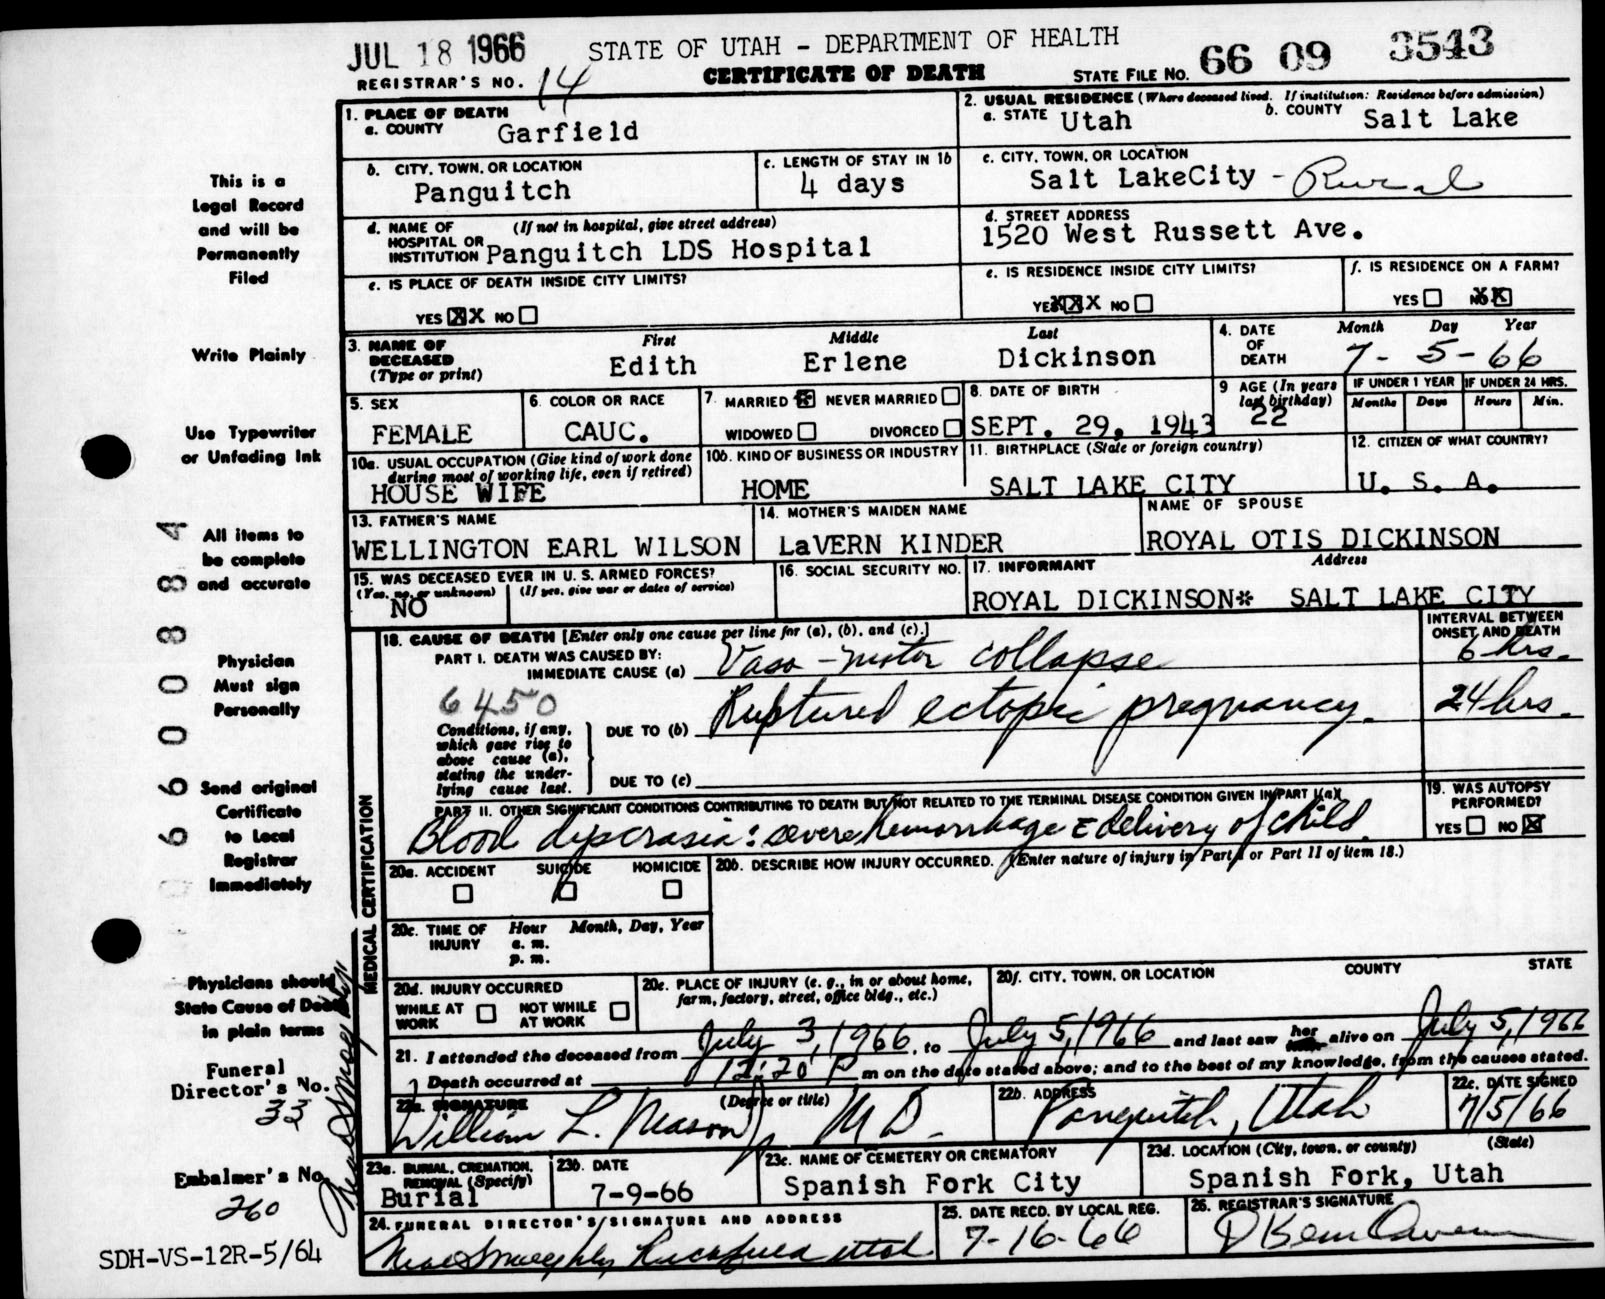 JUL 18 1966
STATE OF UTAH - DEPARTMENT OF HEALTH
REGISTRAR'S NO. 14
CERTIFICATE OF DEATH
STATE FILE NO. 66 09 3543
1. PLACE OF DEATH
a. COUNTY Garfield
2. USUAL RESIDENCE (Where deceased lived. If institution: Residence before admission)
a. STATE Utah b. COUNTY Salt Lake
b. CITY, TOWN, OR LOCATION
Panguitch
c. LENGTH OF STAY IN 1b
4 days
c. CITY, TOWN, OR LOCATION
Salt LakeCity - Rural
d. NAME OF HOSPITAL OR INSTITUTION (If not in hospital, give street address)
Panguitch LDS Hospital
d. STREET ADDRESS
1520 West Russett Ave.
e. IS PLACE OF DEATH INSIDE CITY LIMITS?
YES XX NO
e. IS RESIDENCE INSIDE CITY LIMITS?
YES XXX NO
f. IS RESIDENCE ON A FARM?
YES NO XX
3. NAME OF DECEASED (Type or print)
First Middle Last
Edith Erlene Dickinson
4. DATE OF DEATH Month Day Year
7- 5- 66
5. SEX
FEMALE
6. COLOR OR RACE
CAUC.
7. MARRIED NEVER MARRIED
WIDOWED DIVORCED
8. DATE OF BIRTH
SEPT. 29, 1943
9 AGE (In years last birthday)
22
IF UNDER 1 YEAR IF UNDER 24 HRS.
Months Days Hours Min.
10a. USUAL OCCUPATION (Give kind of work done during most of working life, even if retired)
HOUSE WIFE
10b. KIND OF BUSINESS OR INDUSTRY
HOME
11. BIRTHPLACE (State or foreign country)
SALT LAKE CITY
12. CITIZEN OF WHAT COUNTRY?
U. S. A.
13. FATHER'S NAME
WELLINGTON EARL WILSON
14. MOTHER'S MAIDEN NAME
LaVERN KINDER
NAME OF SPOUSE
ROYAL OTIS DICKINSON
15. WAS DECEASED EVER IN U. S. ARMED FORCES?
(Yes, no, or unknown) (If yes, give war or dates of service)
NO
16. SOCIAL SECURITY NO.
17. INFORMANT Address
ROYAL DICKINSON* SALT LAKE CITY
18. CAUSE OF DEATH [Enter only one cause per line for (a), (b), and (c).]
INTERVAL BETWEEN ONSET AND DEATH
PART I. DEATH WAS CAUSED BY:
IMMEDIATE CAUSE (a) Vaso-motor collapse 6 hrs.
6450
Conditions, if any, which gave rise to above cause (a), stating the underlying cause last.
DUE TO (b) Ruptured ectopic pregnancy. 24 hrs.
DUE TO (c)
PART II. OTHER SIGNIFICANT CONDITIONS CONTRIBUTING TO DEATH BUT NOT RELATED TO THE TERMINAL DISEASE CONDITION GIVEN IN PART I(a)
Blood dyscrasia: severe hemorrhage c delivery of child.
19. WAS AUTOPSY PERFORMED?
YES NO X
20a. ACCIDENT SUICIDE HOMICIDE
20b. DESCRIBE HOW INJURY OCCURRED. (Enter nature of injury in Part I or Part II of item 18.)
20c. TIME OF INJURY Hour Month, Day, Year
a. m.
p. m.
20d. INJURY OCCURRED
WHILE AT WORK NOT WHILE AT WORK
20e. PLACE OF INJURY (e. g., in or about home, farm, factory, street, office bldg., etc.)
20f. CITY, TOWN, OR LOCATION COUNTY STATE
21. I attended the deceased from July 3, 1966, to July 5, 1966 and last saw her alive on July 5, 1966
Death occurred at 12:20 P m on the date stated above; and to the best of my knowledge, from the causes stated.
22a. SIGNATURE (Degree or title)
William L. Mason, M D.
22b. ADDRESS
Panguitch, Utah
22c. DATE SIGNED
7/5/66
23a. BURIAL, CREMATION, REMOVAL (Specify)
Burial
23b. DATE
7-9-66
23c. NAME OF CEMETERY OR CREMATORY
Spanish Fork City
23d. LOCATION (City, town, or county) (State)
Spanish Fork, Utah
24. FUNERAL DIRECTOR'S SIGNATURE AND ADDRESS
Utah
25. DATE RECD. BY LOCAL REG.
7-16-66
26. REGISTRAR'S SIGNATURE
MEDICAL CERTIFICATION
This is a
Legal Record
and will be
Permanently
Filed
Write Plainly
Use Typewriter
or Unfading Ink
All items to
be complete
and accurate
Physician
Must sign
Personally
Send original
Certificate
to Local
Registrar
Immediately
Physicians should
State Cause of Death
in plain terms
Funeral
Director's No.
33
Embalmer's No.
260
SDH-VS-12R-5/64
06600884